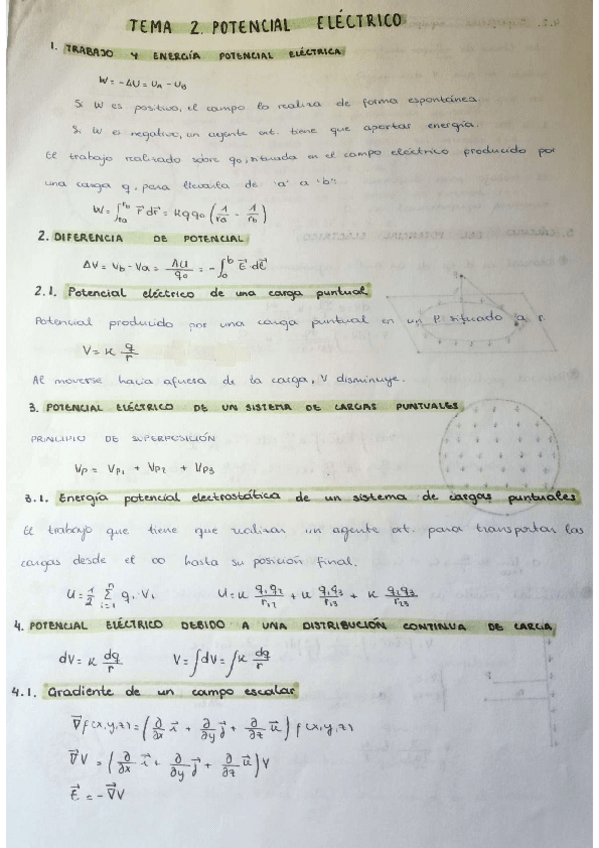 TEMA 2. POTENCIAL ELÉCTRICO
1. TRABAJO Y ENERGÍA POTENCIAL ELÉCTRICA
W = -ΔU = UA - UB
Si W es positivo, el campo lo realiza de forma espontánea.
Si W es negativo, un agente ext. tiene que aportar energía.
El trabajo realizado sobre q0, situada en el campo eléctrico producido por
una carga q, para llevarla de 'a' a 'b'.
W = ∫_ra^rb F⃗ dr⃗ = K q q0 (1/ra - 1/rb)
2. DIFERENCIA DE POTENCIAL
ΔV = Vb - Va = ΔU/q0 = -∫_a^b E⃗ · dℓ⃗
2.1. Potencial eléctrico de una carga puntual
Potencial producido por una carga puntual en un P. situado a r.
V = K q/r
Al moverse hacia afuera de la carga, V disminuye.
3. POTENCIAL ELÉCTRICO DE UN SISTEMA DE CARGAS PUNTUALES
PRINCIPIO DE SUPERPOSICIÓN
Vp = Vp1 + Vp2 + Vp3
3.1. Energía potencial electrostática de un sistema de cargas puntuales
El trabajo que tiene que realizar un agente ext. para transportar las
cargas desde el ∞ hasta su posición final.
U = 1/2 Σ_{i=1}^n qi Vi U = K q1q2/r12 + K q1q3/r13 + K q2q3/r23
4. POTENCIAL ELÉCTRICO DEBIDO A UNA DISTRIBUCIÓN CONTINUA DE CARGA
dV = K dq/r V = ∫dV = ∫K dq/r
4.1. Gradiente de un campo escalar
∇⃗f(x,y,z) = (∂/∂x i⃗ + ∂/∂y j⃗ + ∂/∂z k⃗) f(x,y,z)
∇⃗V = (∂/∂x i⃗ + ∂/∂y j⃗ + ∂/∂z k⃗)V
E⃗ = -∇⃗V